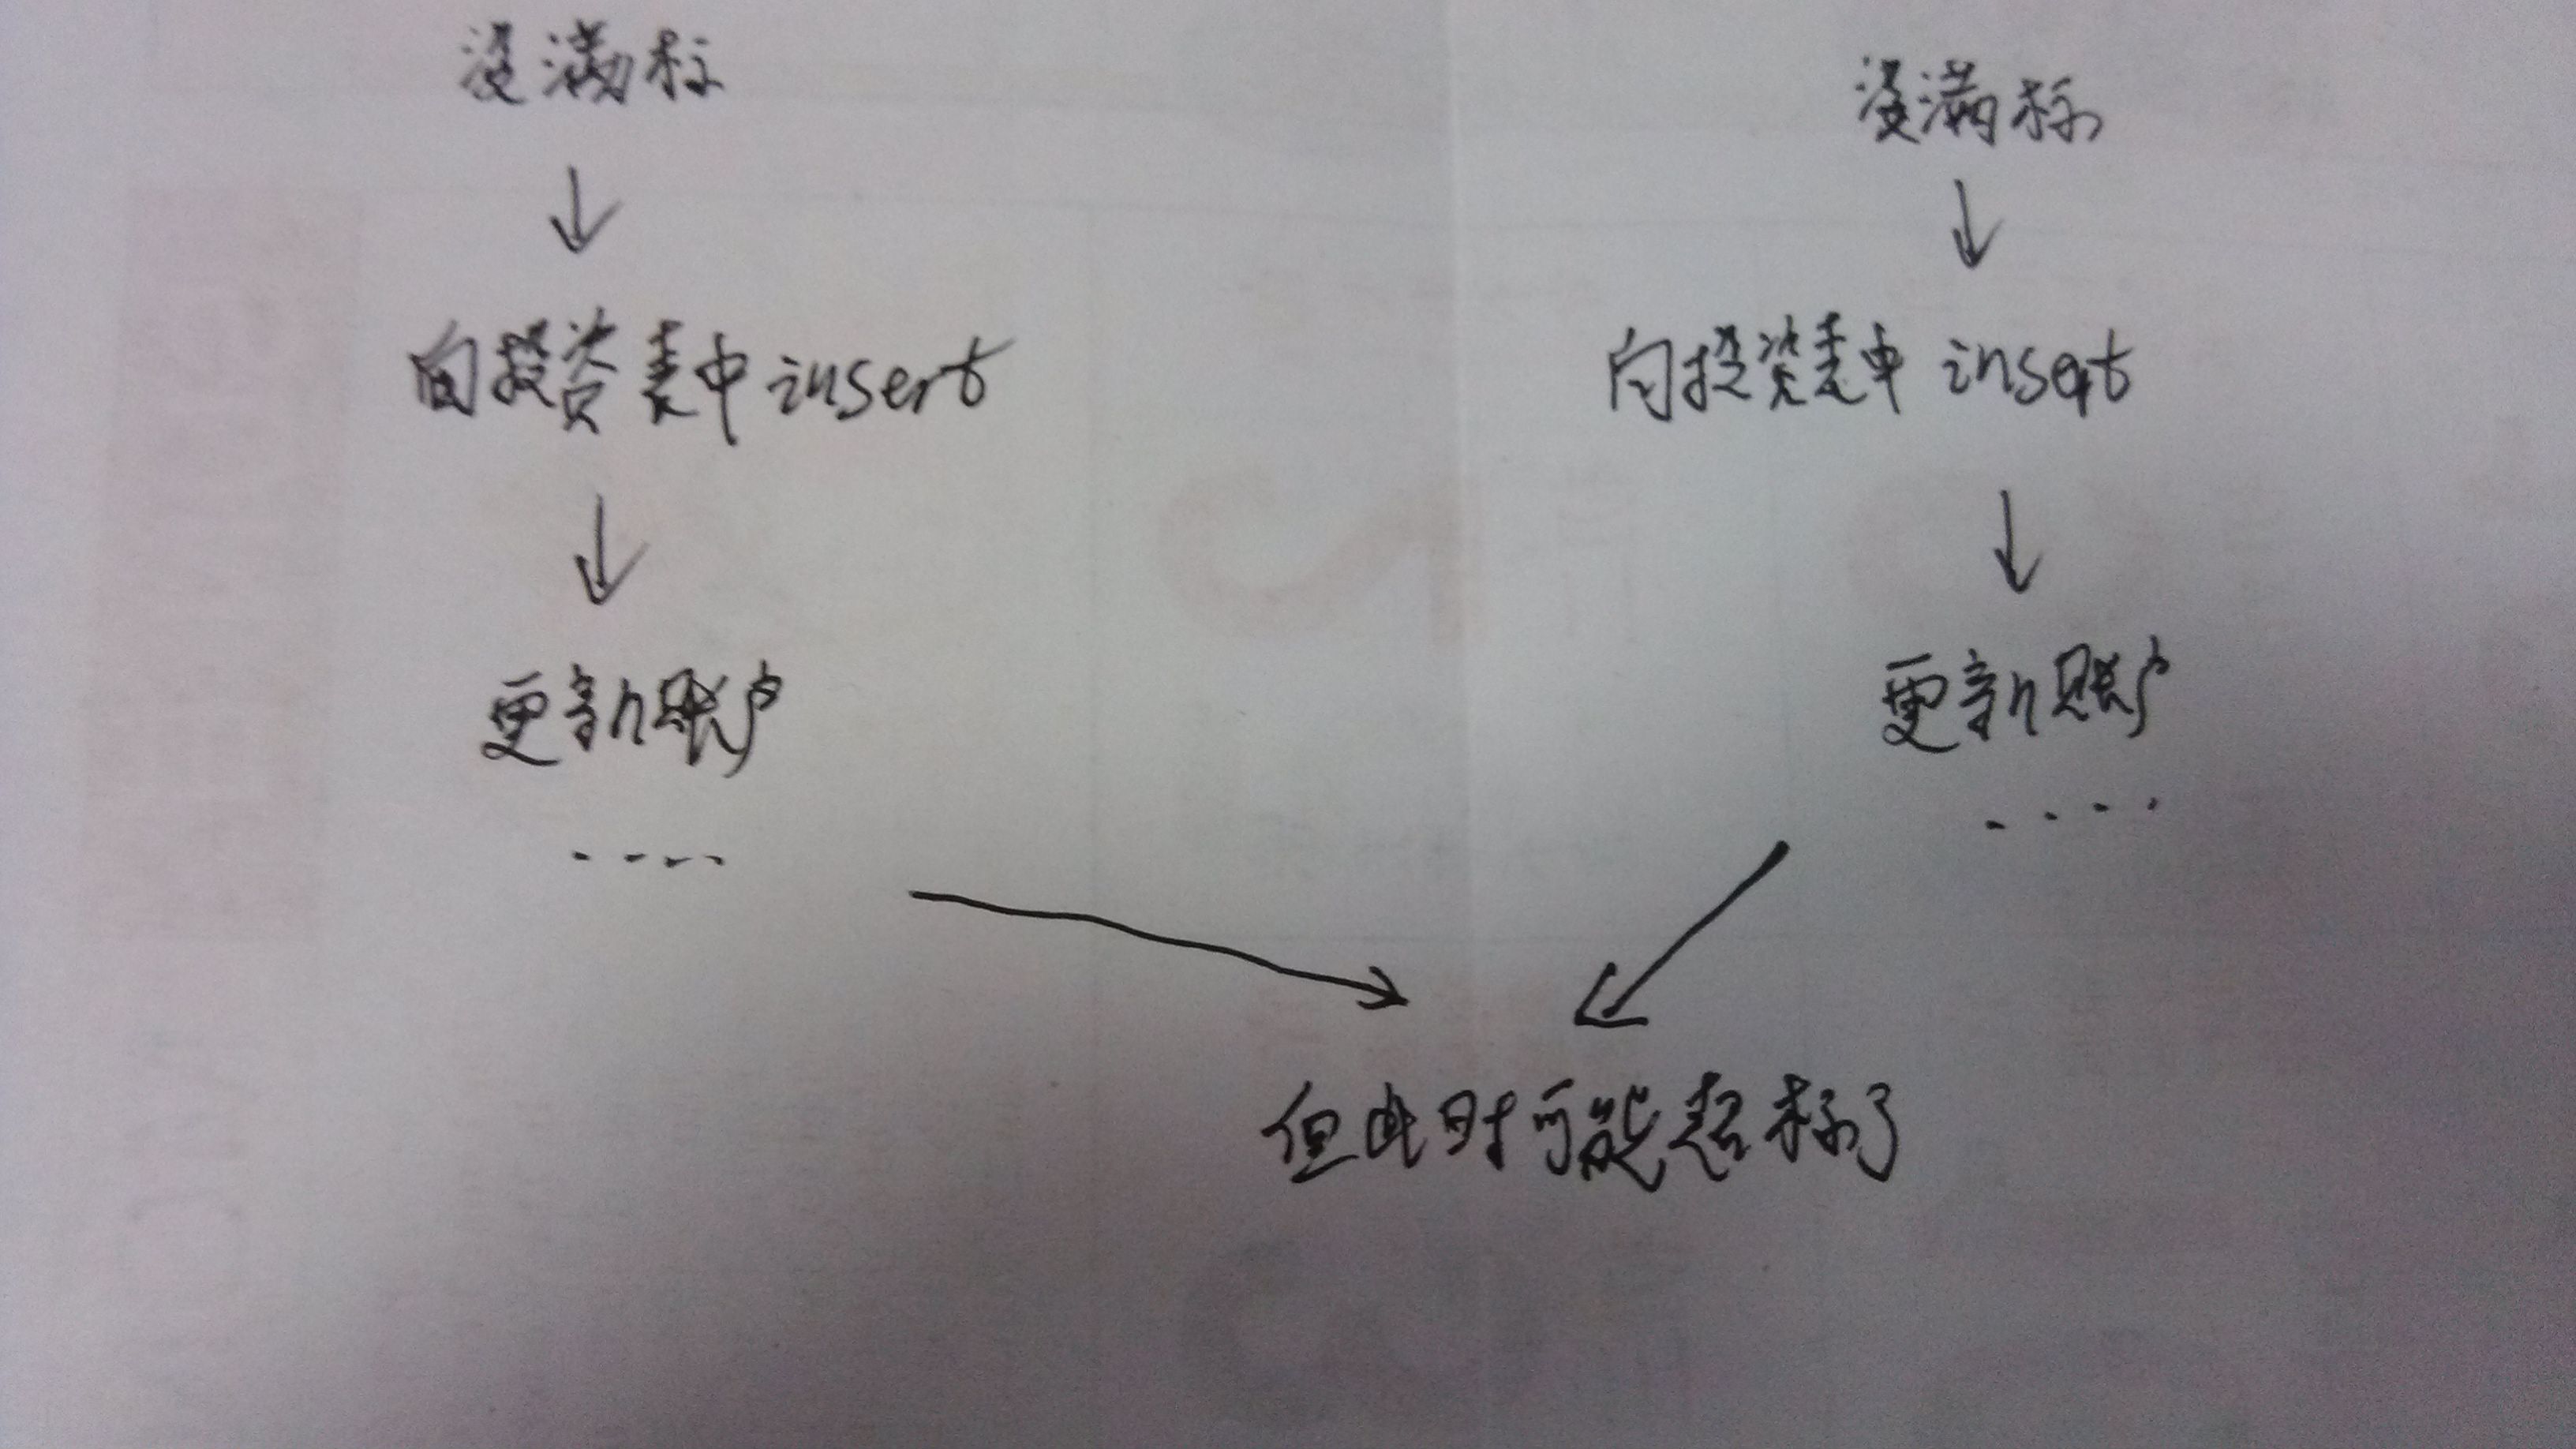 没满标
没满标
向投资表中insert
向投资表中insert
更新账户
更新账户
....
....
但此时可能超标了